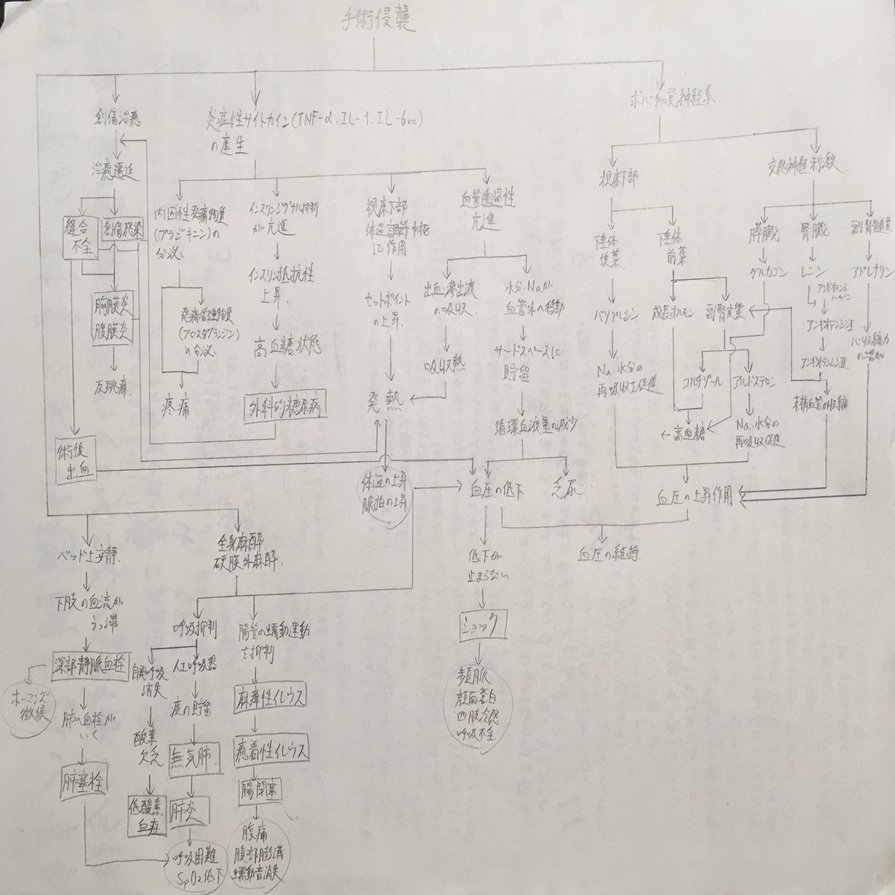 手術侵襲
創傷治癒
治癒遅延
縫合
不全
創傷感染
胸膜炎
腹膜炎
反跳痛
術後
出血
炎症性サイトカイン(TNF-α、IL-1、IL-6etc)
の産生
内因性発痛物質
(ブラジキニン)の
分泌
(プロスタグランジン)
の分泌
疼痛
インスリンシグナル抑制
が亢進
インスリン抵抗性
上昇
高血糖状態
外科的糖尿病
視床下部
体温調節中枢
に作用
セットポイント
の上昇
発熱
体温の上昇
脈拍の上昇
血管透過性
亢進
出血・滲出液
の吸収
吸収熱
水分、Naが
血管外へ移動
サードスペースに
貯留
循環血液量の減少
血圧の低下
乏尿
低下が
止まらない
ショック
頻脈
顔面蒼白
四肢冷感
呼吸不全
血圧の維持
神経系
視床下部
下垂体
後葉
バソプレシン
Na、水分の
再吸収を促進
下垂体
前葉
成長ホルモン
副腎皮質
コルチゾール
アルドステロン
←高血糖
Na、水分の
再吸収促進
血圧の上昇作用
交感神経刺激
膵臓
グルカゴン
腎臓
レニン
アンギオテンシノーゲン
アンギオテンシンⅠ
アンギオテンシンⅡ
末梢血管の収縮
副腎髄質
アドレナリン
の増加
ベッド上安静
下肢の血流が
うっ滞
深部静脈血栓
ホーマンズ
徴候
肺へ血栓が
いく
肺塞栓
全身麻酔
硬膜外麻酔
呼吸抑制
自発呼吸
消失
酸素
欠乏
低酸素
血症
人工呼吸器
痰の貯留
無気肺
肺炎
呼吸困難
SpO2低下
腸管の蠕動運動
を抑制
麻痺性イレウス
癒着性イレウス
腸閉塞
腹痛
腹部膨満
蠕動音消失